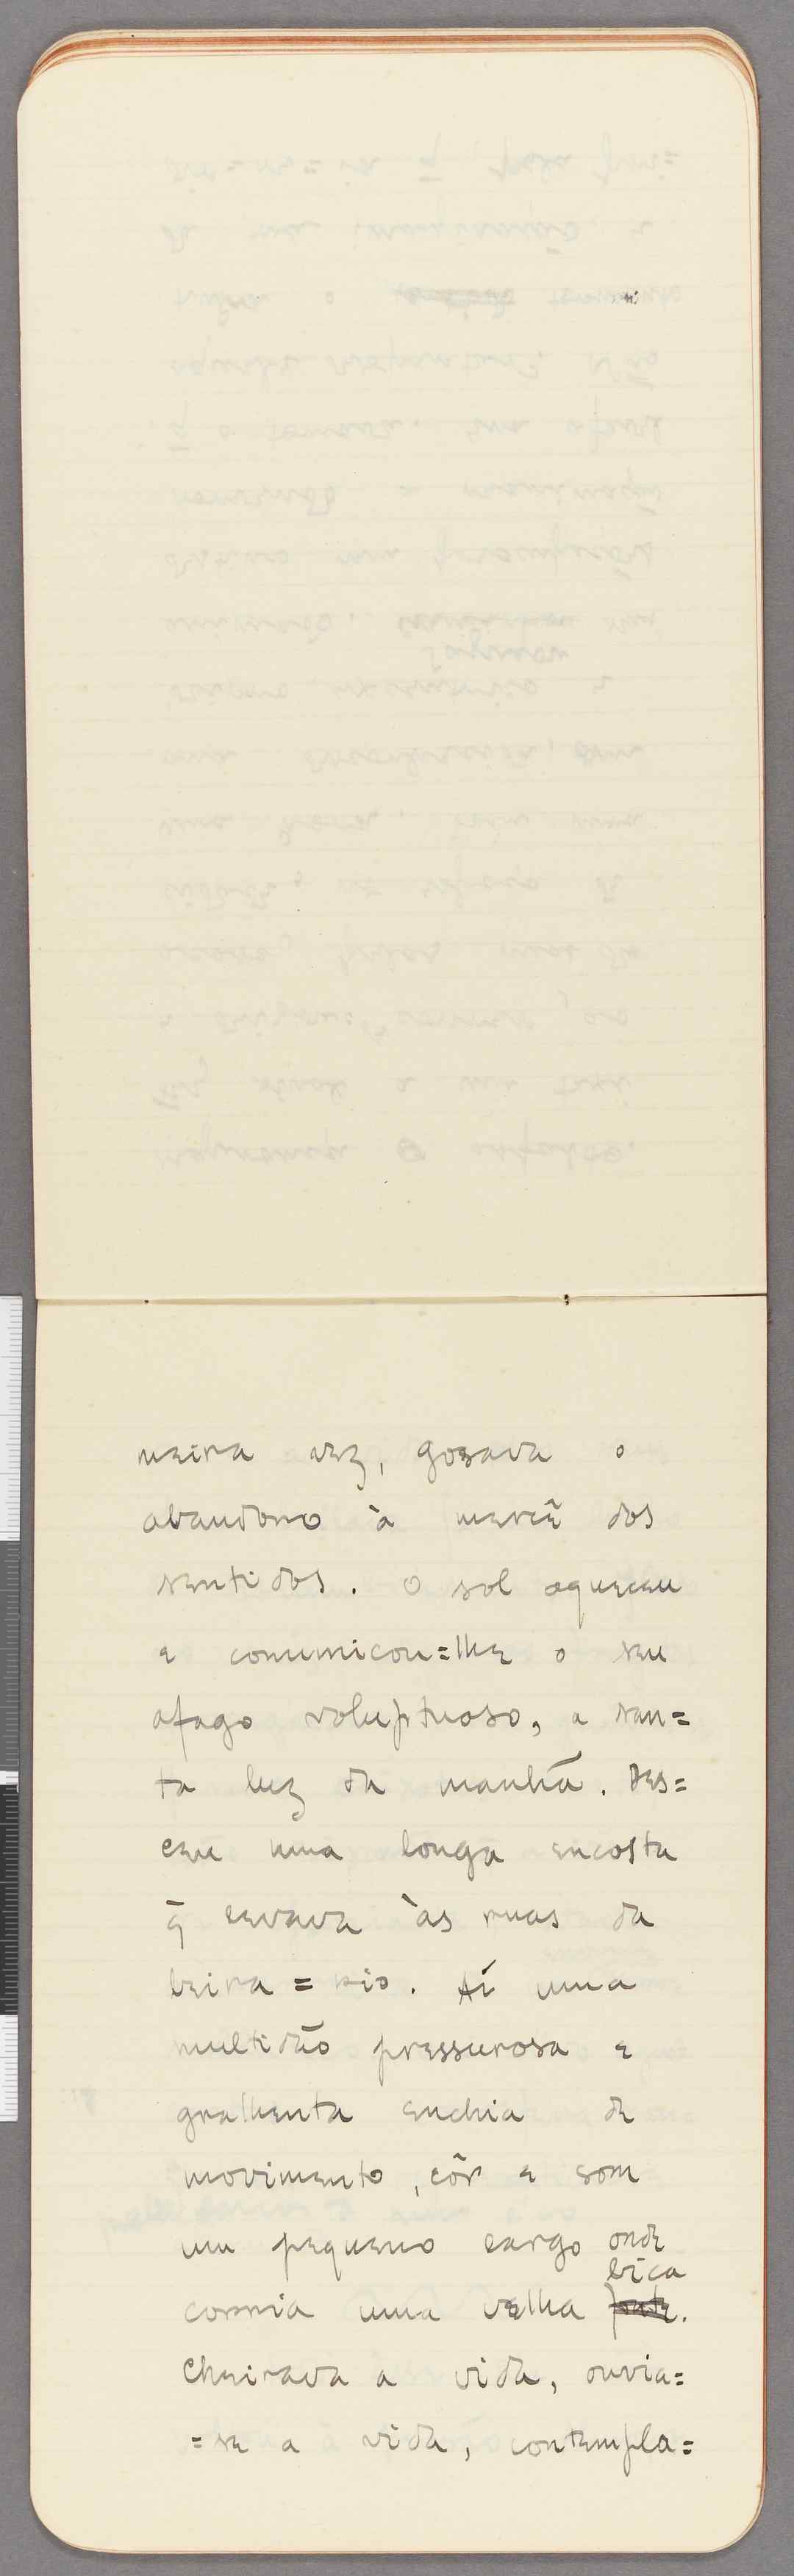 meira vez, gosava o
abandono à mercê dos
sentidos. O sol aqueceu
e comunicou=lhe o seu
afago voluptuoso, a san=
ta luz da manhã. Des=
ceu uma longa encosta
q̄ levava às ruas da
beira=rio. Aí uma
multidão pressurosa e
gralhenta enchia de
movimento, côr e som
um pequeno largo onde
bica
corria uma velha fonte.
Cheirava a vida, ouvia=
=se a vida, contempla=